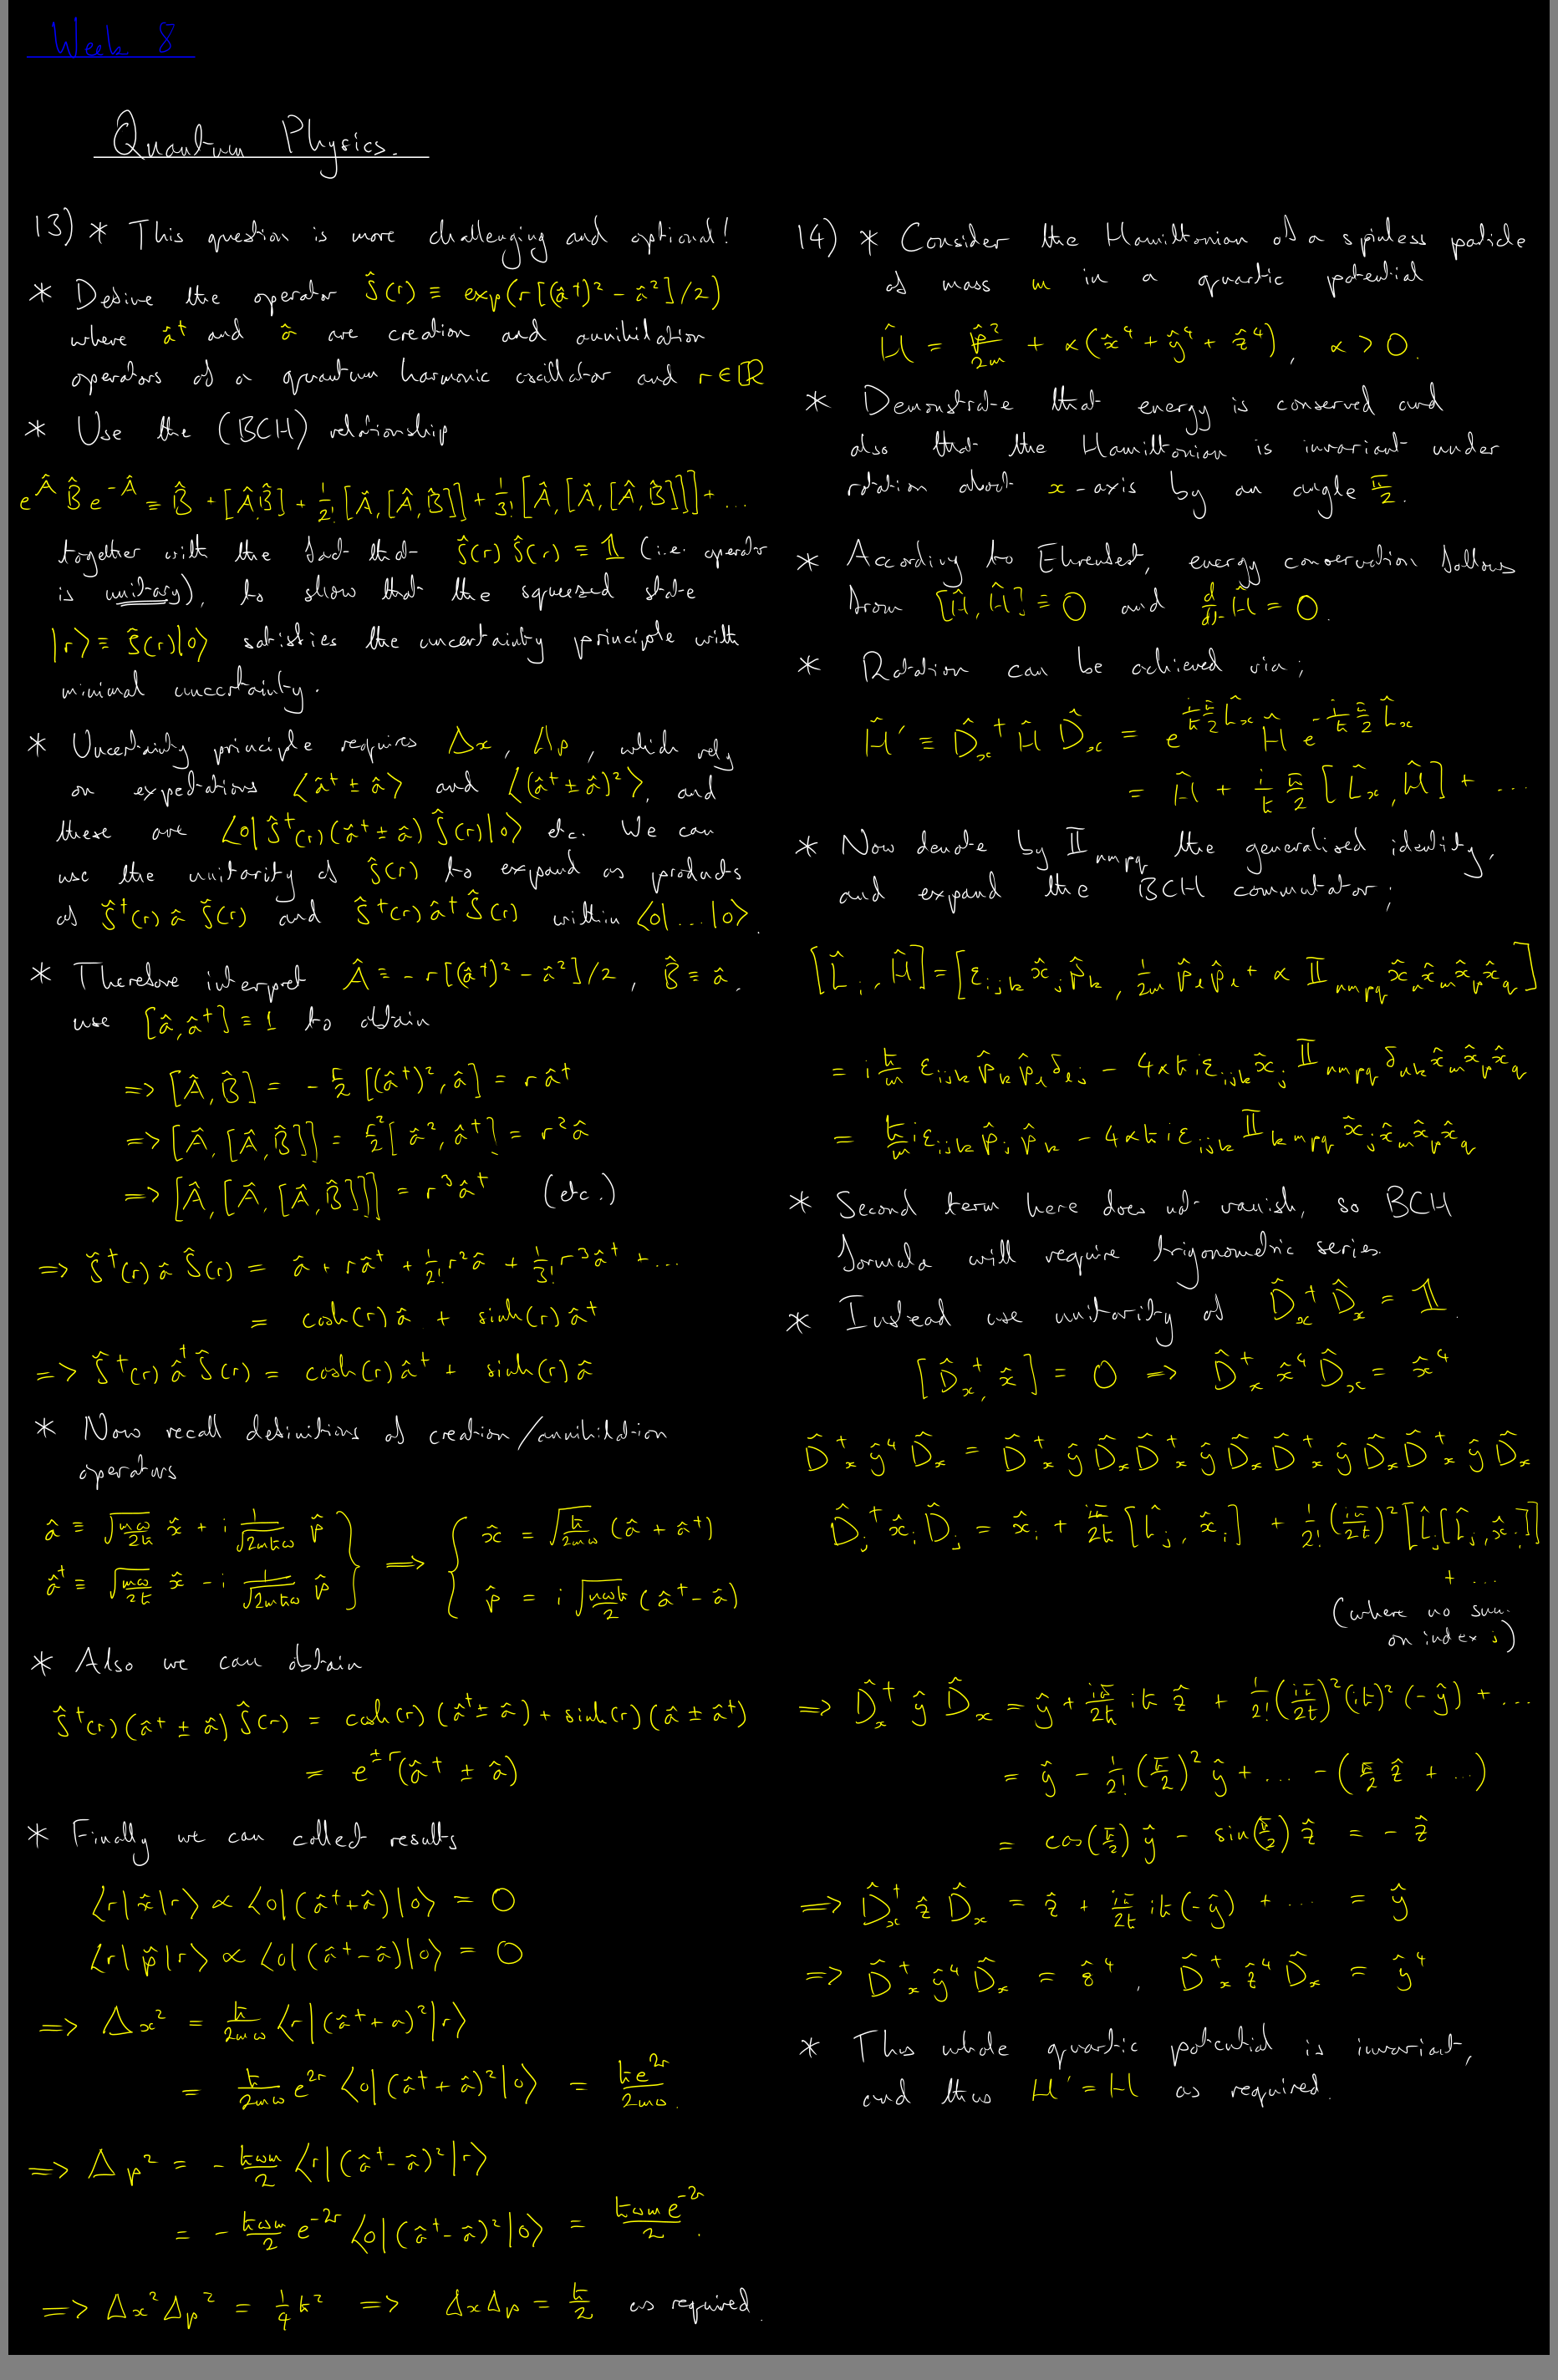 Week 8
Quantum Physics.
13) * This question is more challenging and optional!
* Define the operator Ŝ(r) ≡ exp(r[(â†)² - â²]/2)
where â† and â are creation and annihilation
operators of a quantum harmonic oscillator and r ∈ ℝ
* Use the (BCH) relationship
e^Â B̂ e^-Â = B̂ + [Â,B̂] + 1/2! [Â,[Â,B̂]] + 1/3! [Â,[Â,[Â,B̂]]] + ...
together with the fact that Ŝ(r) Ŝ(r) ≡ 𝟙 (i.e. operator
is unitary), to show that the squeezed state
|r⟩ ≡ Ŝ(r)|0⟩ satisfies the uncertainty principle with
minimal uncertainty.
* Uncertainty principle requires Δx, Δp, which rely
on expectations ⟨â† ± â⟩ and ⟨(â† ± â)²⟩, and
these are ⟨0|Ŝ†(r)(â† ± â)Ŝ(r)|0⟩ etc. We can
use the unitarity of Ŝ(r) to expand as products
of Ŝ†(r) â Ŝ(r) and Ŝ†(r) â† Ŝ(r) within ⟨0|...|0⟩.
* Therefore interpret Â ≡ -r[(â†)² - â²]/2, B̂ ≡ â,
use [â,â†] ≡ 1 to obtain
=> [Â,B̂] = -r/2 [(â†)², â] = r â†
=> [Â,[Â,B̂]] = r²/2 [â², â†] = r² â
=> [Â,[Â,[Â,B̂]]] = r³ â† (etc.)
=> Ŝ†(r) â Ŝ(r) = â + r â† + 1/2! r² â + 1/3! r³ â† + ...
= cosh(r) â + sinh(r) â†
=> Ŝ†(r) â† Ŝ(r) = cosh(r) â† + sinh(r) â
* Now recall definitions of creation/annihilation
operators
â ≡ √(mω/2ħ) x̂ + i 1/√(2mħω) p̂
â† ≡ √(mω/2ħ) x̂ - i 1/√(2mħω) p̂
=> x̂ = √(ħ/2mω) (â + â†)
p̂ = i √(mωħ/2) (â† - â)
* Also we can obtain
Ŝ†(r)(â† ± â)Ŝ(r) = cosh(r)(â† ± â) + sinh(r)(â ± â†)
= e^±r (â† ± â)
* Finally we can collect results
⟨r|x̂|r⟩ ∝ ⟨0|(â† + â)|0⟩ = 0
⟨r|p̂|r⟩ ∝ ⟨0|(â† - â)|0⟩ = 0
=> Δx² = ħ/2mω ⟨r|(â† + a)²|r⟩
= ħ/2mω e^2r ⟨0|(â† + â)²|0⟩ = ħe^2r/2mω.
=> Δp² = - ħωm/2 ⟨r|(â† - â)²|r⟩
= - ħωm/2 e^-2r ⟨0|(â† - â)²|0⟩ = ħωm e^-2r/2.
=> Δx²Δp² = 1/4 ħ² => ΔxΔp = ħ/2 as required.
14) * Consider the Hamiltonian of a spinless particle
of mass m in a quartic potential
Ĥ = p̂²/2m + α(x̂⁴ + ŷ⁴ + ẑ⁴), α > 0.
* Demonstrate that energy is conserved and
also that the Hamiltonian is invariant under
rotation about x-axis by an angle π/2.
* According to Ehrenfest, energy conservation follows
from [Ĥ,Ĥ] ≡ 0 and d/dt Ĥ = 0.
* Rotation can be achieved via;
Ĥ' ≡ D̂ₓ† Ĥ D̂ₓ = e^(i/ħ π/2 L̂ₓ) Ĥ e^(-i/ħ π/2 L̂ₓ)
= Ĥ + i/ħ π/2 [L̂ₓ, Ĥ] + ...
* Now denote by 𝕀_nmpq the generalised identity,
and expand the BCH commutator;
[L̂_i, Ĥ] = [ε_ijk x̂_j p̂_k, 1/2m p̂_l p̂_l + α 𝕀_nmpq x̂_n x̂_m x̂_p x̂_q]
= i ħ/m ε_ijk p̂_k p̂_l δ_lj - 4αħ i ε_ijk x̂_j 𝕀_nmpq δ_nk x̂_m x̂_p x̂_q
= ħ/m i ε_ijk p̂_j p̂_k - 4αħ i ε_ijk 𝕀_kmpq x̂_j x̂_m x̂_p x̂_q
* Second term here does not vanish, so BCH
formula will require trigonometric series.
* Instead use unitarity of D̂ₓ† D̂ₓ = 𝟙.
[D̂ₓ†, x̂] = 0 => D̂ₓ† x̂⁴ D̂ₓ = x̂⁴
D̂ₓ† ŷ⁴ D̂ₓ = D̂ₓ† ŷ D̂ₓ D̂ₓ† ŷ D̂ₓ D̂ₓ† ŷ D̂ₓ D̂ₓ† ŷ D̂ₓ
D̂_j† x̂_i D̂_j = x̂_i + iπ/2ħ [L̂_j, x̂_i] + 1/2! (iπ/2ħ)² [L̂_j[L̂_j, x̂_i]]
+ ...
(where no sum
on index j)
=> D̂ₓ† ŷ D̂ₓ = ŷ + iπ/2ħ iħ ẑ + 1/2! (iπ/2ħ)² (iħ)² (-ŷ) + ...
= ŷ - 1/2! (π/2)² ŷ + ... - (π/2 ẑ + ...)
= cos(π/2) ŷ - sin(π/2) ẑ = - ẑ
=> D̂ₓ† ẑ D̂ₓ = ẑ + iπ/2ħ iħ (-ŷ) + ... = ŷ
=> D̂ₓ† ŷ⁴ D̂ₓ = ẑ⁴, D̂ₓ† ẑ⁴ D̂ₓ = ŷ⁴
* Thus whole quartic potential is invariant,
and thus H' = H as required.